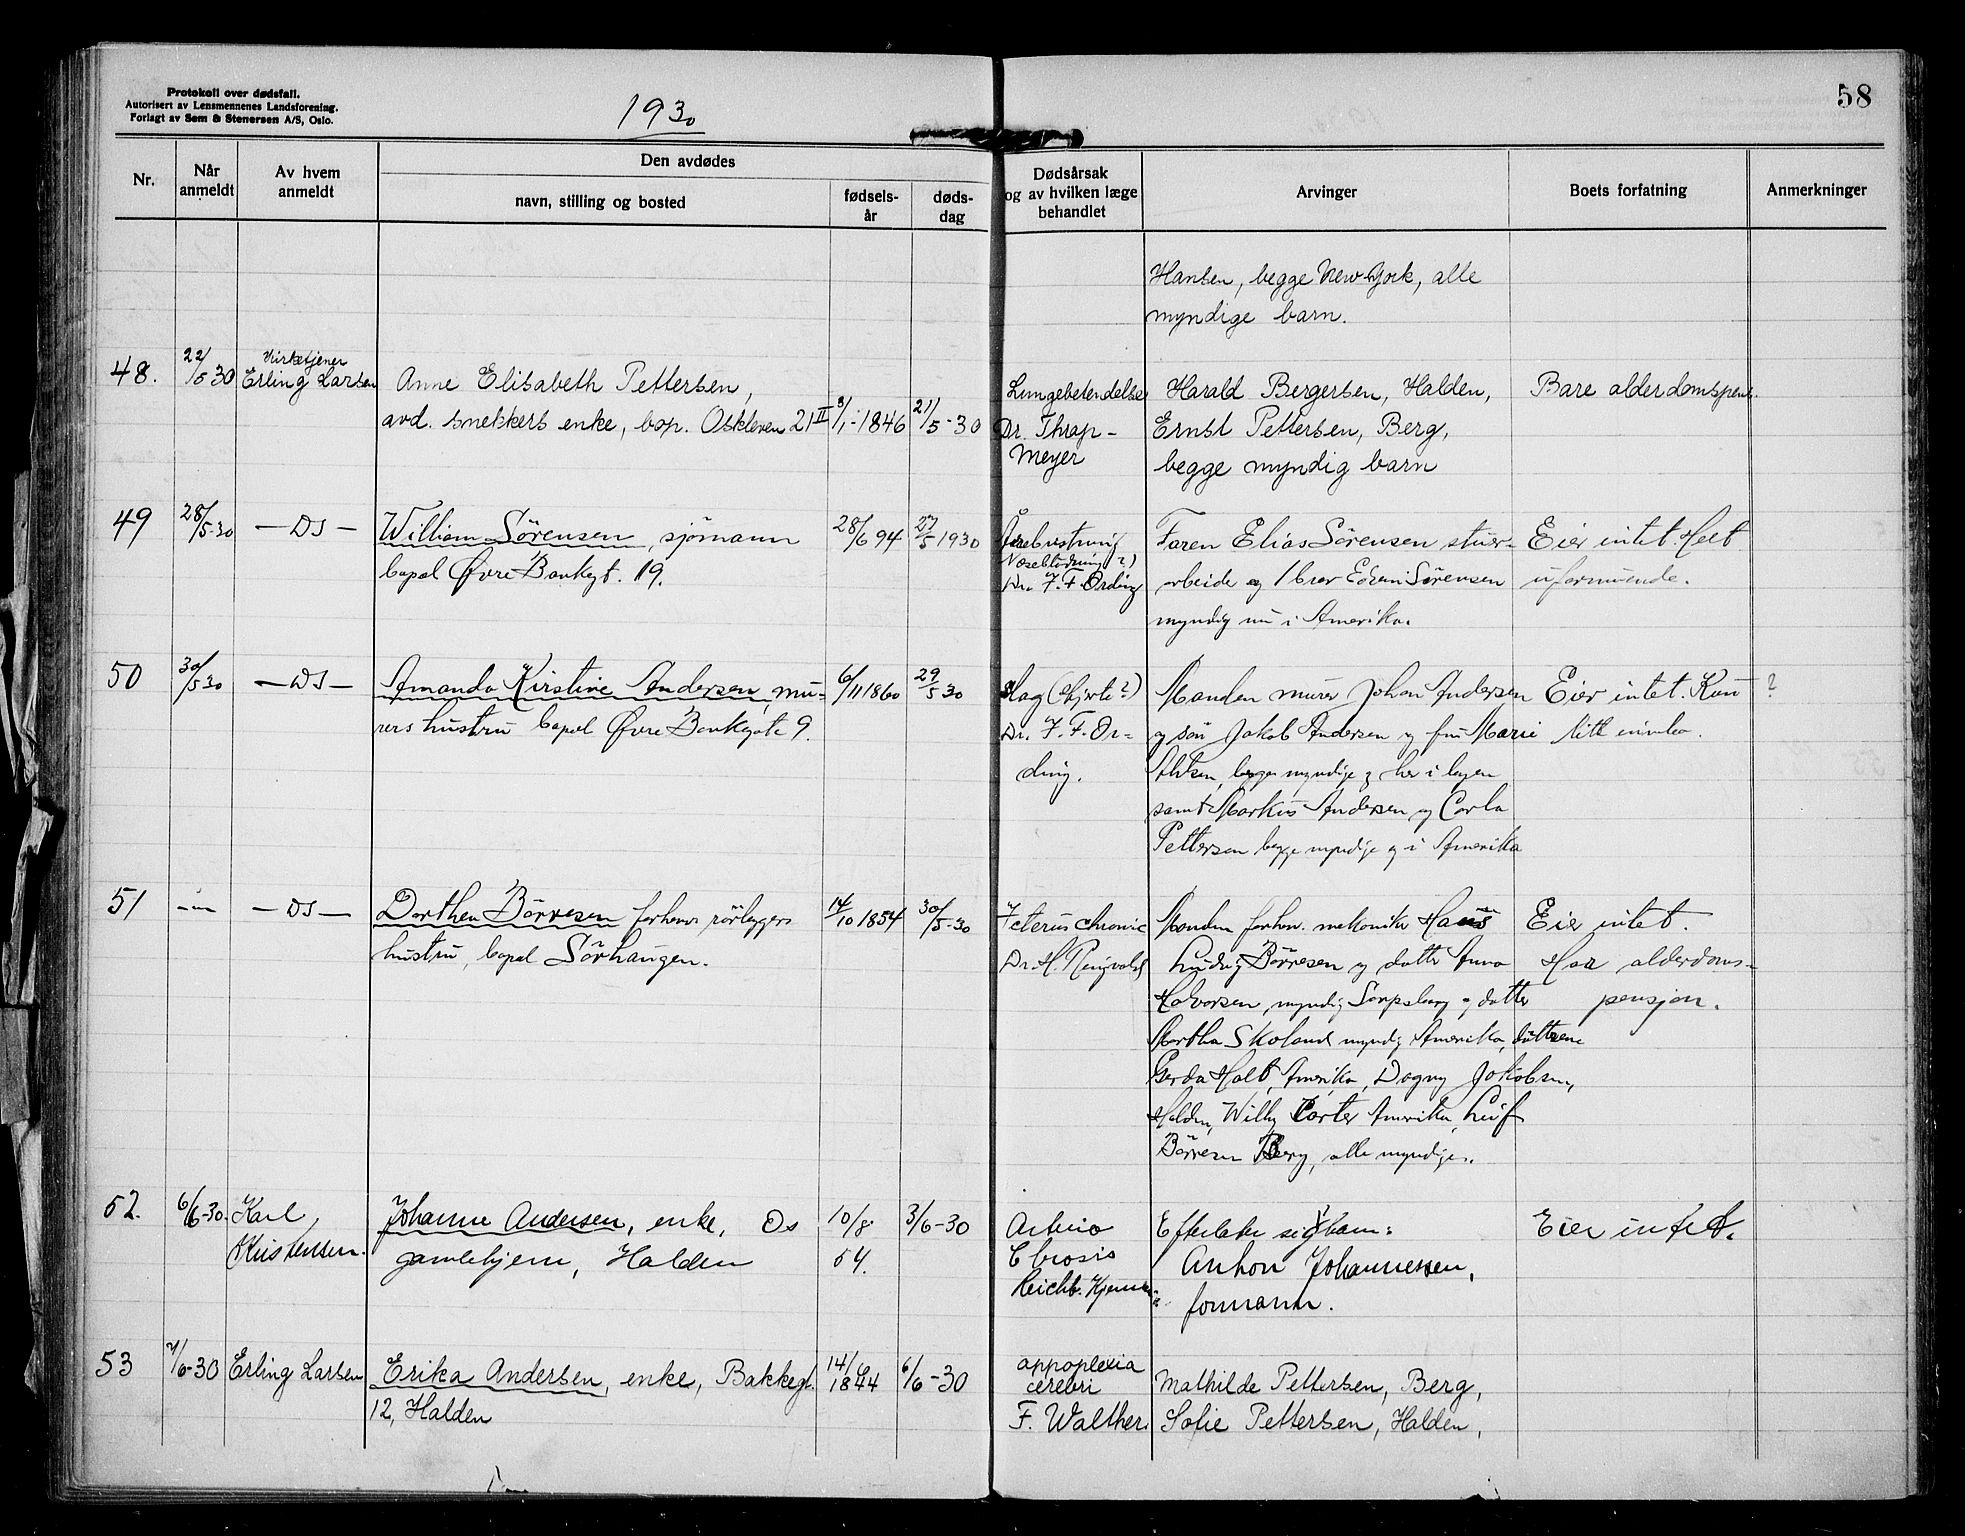 Protokoll over dødsfall.
Autorisert av Lensmennenes Landsforening.
Forlagt av Sem & Stenersen A/S, Oslo.
1930
58
Nr.
Når anmeldt
Av hvem anmeldt
Den avdødes
navn, stilling og bosted
fødselsår
dødsdag
Dødsårsak og av hvilken læge behandlet
Arvinger
Boets forfatning
Anmerkninger
Hansen, begge New York, alle
myndige barn.
48.
22/5 30
Kirketjener
Erling Larsen
Anne Elisabeth Pettersen,
avd. snekkers enke, bop. Oskleven 21 II
3/1-1846
21/5-30
Lungebetendelse
Dr. Thrap-
Meyer
Harald Bergersen, Halden,
Ernst Pettersen, Berg,
begge myndig barn
Bare alderdomspens.
49
28/5-30
- DS -
William Sörensen, sjömann
bopel Øvre Bankgt. 19.
28/6 94
27/5 1930
Åre
Neseblödning ?)
Dr. F. F. Ording
Faren Elias Sörensen stuer-
arbeide og 1 bror Sörensen
myndig nu i Amerika.
Eier intet. Helt
uformuende.
50
30/5 30
- DS -
Amanda Kirstine Andersen, mu-
rers hustru bopel Øvre Bankgate 9.
6/11 1860
29/5 30
Slag (hjerte?)
Dr. F. F. Or-
ding.
Manden murer Johan Andersen
og sön Jakob Andersen og fru Marie
begge myndige og her i byen
samt Markus Andersen og Carla
Pettersen begge myndige og i Amerika
Eier intet. Kun
litt innbo.
?
51
- DS -
Dorthea Börresen forhenv. rörleggers
hustru, bopel Sörhaugen.
14/10 1854
30/5-30
Icterus chronic
Dr. H.
Manden forhen. mekaniker Hans
Ludvig Börresen og datter Anna
Halvorsen, myndig Sarpsborg og datter
Martha Skoland myndig Amerika, döttrene
Gerda Holt, Amerika, Dagny Jakobsen,
Halden, Willy Carter Amerika, Leif
Börresen Berg, alle myndige.
Eier intet.
Har alderdoms-
pensjon.
52.
6/6-30.
Karl
Kristensen.
Johanne Andersen, enke, Os
gamlehjem, Halden
10/8
54.
3/6-30
Arterio
Reichb.
Efterlater sig barn:
Anton Johannessen,
formann.
Eier intet.
53
7/6-30
Erling Larsen
Erika Andersen, enke, Bakkegt.
12, Halden
14/6
1844
6/6-30
appoplexia
cerebri
F. Walther.
Mathilde Pettersen, Berg,
Sofie Pettersen, Halden,